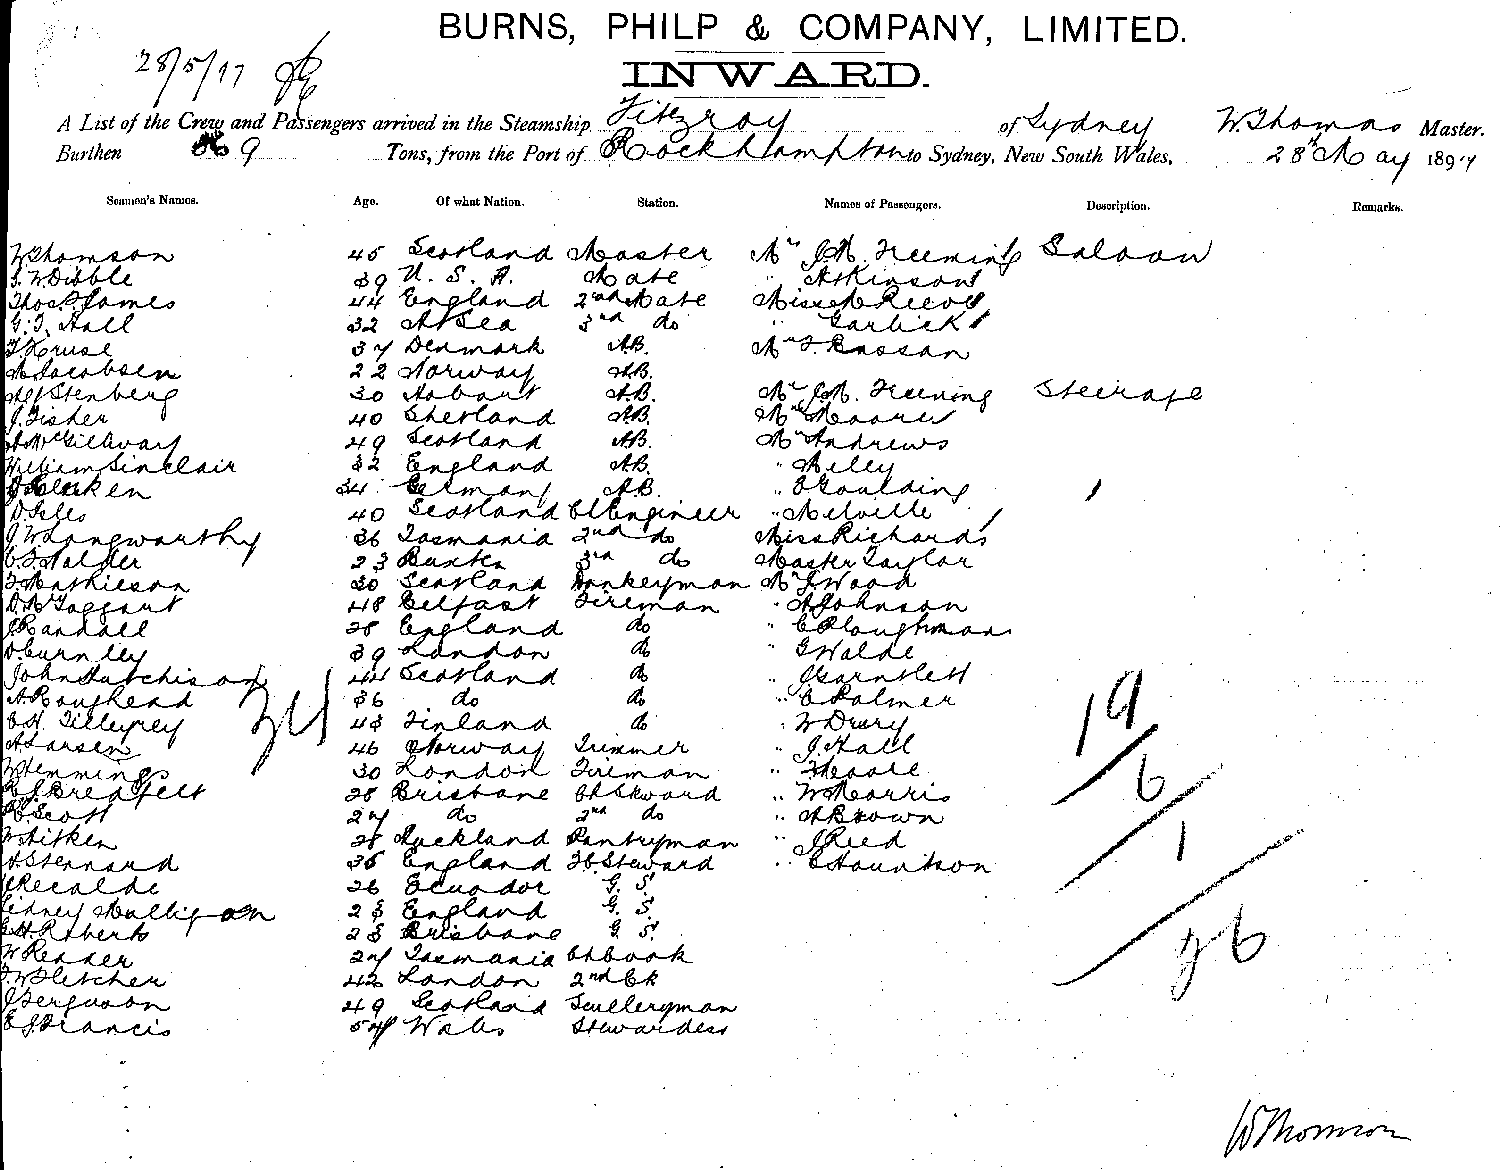 BURNS, PHILP & COMPANY, LIMITED.
INWARD.
28/5/97
A List of the Crew and Passengers arrived in the Steamship Fitzroy of Sydney W. Thomas Master.
Burthen 9 Tons, from the Port of Rockhampton to Sydney, New South Wales, 28th May 1897
Seamen's Names. Age. Of what Nation. Station. Names of Passengers. Description. Remarks.
W Thomson 45 Scotland Master Mr J.M. Freeming Saloon
W. Dibble 39 U. S. A. Mate " Atkinson
Thos P James 44 England 2nd Mate Miss Reeve
G. J. Hall 32 At Sea 3rd do " Garlick
J. Kruse 37 Denmark A.B.
A Jacobsen 22 Norway A.B.
Stenberg 30 Hobart A.B. Mr J.M. Freeming Steerage
J. Fisher 40 Shetland A.B. Moore
A McGillivary 49 Scotland A.B. Mr Andrews
William Sinclair 32 England A.B. " Kelly
34 Germany A.B. " E Goulding
D Isles 40 Scotland Ch Engineer " Melville
J W Langworthy 36 Tasmania 2nd do Miss Richards
C. F. Halder 23 3rd do Master Taylor
J. Mathieson 30 Scotland Donkeyman Mr J Wood
D. McTaggart 48 Belfast Fireman " A Johnson
J Randall 28 England do " C Ploughman
D. Curnley 39 London do " G Walde
John Hutchison 44 Scotland do " J Garnlett
A Roughead 36 do do " C Palmer
C. H. Tilleyrey 43 Finland do " W Drury
A Larsen 46 Norway Trimmer " J. Hall
W Hemmings 30 London Fireman
34
19
28 Brisbane Ch Steward " W Morris
6
Scott 27 do 2nd do " A Brown
W Aitken 28 Auckland Pantryman " J Reed
1
A Stennard 36 England F.C. Steward " C Staunton
J Recalde 26 Ecuador G. S.
Sidney Mulligan 23 England G. S.
G H. Roberts 23 Brisbane G. S.
26
W Reader 27 Tasmania Ch Cook
J. W Fletcher 42 London 2nd Ck
J Ferguson 49 Scotland Sculleryman
E J Francis 54 Wales Stewardess
W Thomson